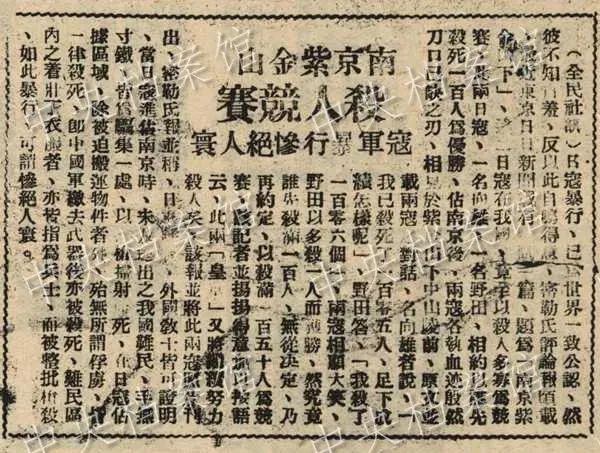 南京紫金山
殺人競賽
寇軍暴行慘絕人寰
（全民社訊）日寇暴行、已爲世界一致公認、然
彼不知羞、反以此自鳴得意、密勒氏評論報頃載
、最近東京日日新聞載有一篇、題爲南京紫
金山下」、二日寇在我國以殺人多寡爲競
賽、此兩日寇、一名向雄一名野田、相約以誰先
殺死一百人爲優勝、佔南京後、兩寇各執血迹殷然
刀口已缺之刃、相見於紫金山下中山陵前、原文並
載兩寇之對話、名向雄者說、「
我已殺死了一百零五人、足下成
績怎樣呢」、野田答、「我殺了
一百零六個」、兩寇相顧大笑、
野田以多殺一人而獲勝、然究竟
誰先殺滿一百人、無從決定、乃
再約定、以殺滿一百五十人爲競
賽、該記者並揚揚得意加以按語
云、此兩「皇軍」又將繼續努力
殺人矣、該報並將此兩寇照片刊
出、密勒氏報並稱、日寇暴行、外國敎士皆可證明
、當日寇進佔南京時、未及逃出之我國難民、手無
寸鐵、皆爲驅集一處、以機槍掃射而死、在日寇佔
據區域、除被迫搬運物件者外、殆無所謂俘虜、皆
一律殺死、卽中國軍繳去武器後亦被殺死、難民區
內之着壯丁衣服者、亦被指爲兵士、而被整批槍殺
、如此暴行、可謂慘絕人寰。
中央档案馆
中央档案馆
中央档案馆